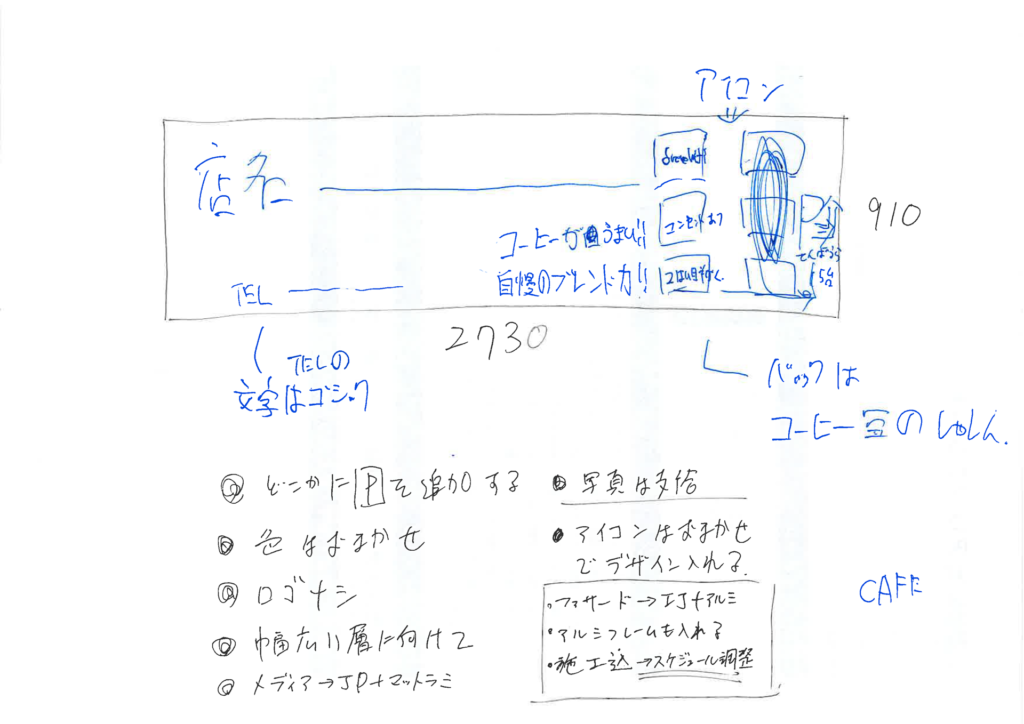 アイコン
店名
コンセントあり
910
コーヒーがうまい!!
自慢のブレンド力!!
TEL
5台
2730
TELの
文字はゴシック
バックは
コーヒー豆のしゃしん
◎ どこかにPを追加する
◎ 色はおまかせ
◎ ロゴナシ
◎ 幅広い層に向けて
◎ メディア→IJP+マットラミ
● 写真は支給
● アイコンはおまかせ
でデザイン入れる.
・ファサード→IJ+アルミ
・アルミフレームも入れる
・施工込→スケジュール調整
CAFE